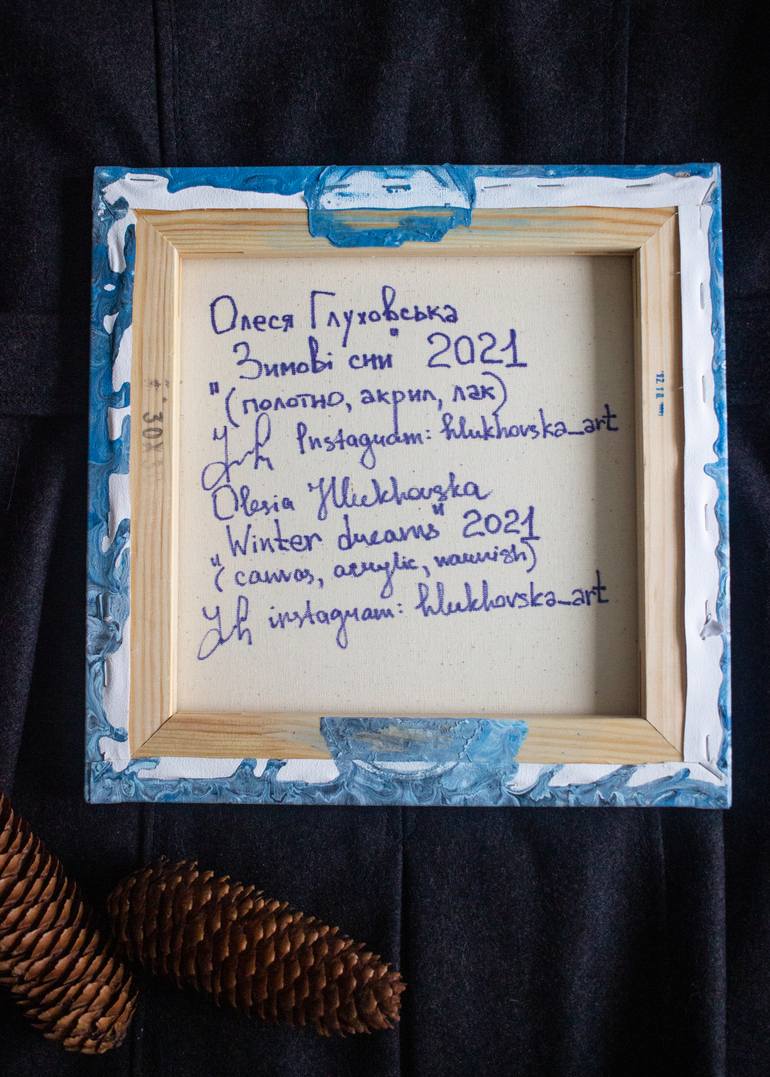 Олеся Глуховська
"Зимові сни" 2021
(полотно, акрил, лак)
Instagram: hlukhovska_art
Olesia Hlukhovska
"Winter dreams" 2021
(canvas, acrylic, warnish)
instagram: hlukhovska_art
30X